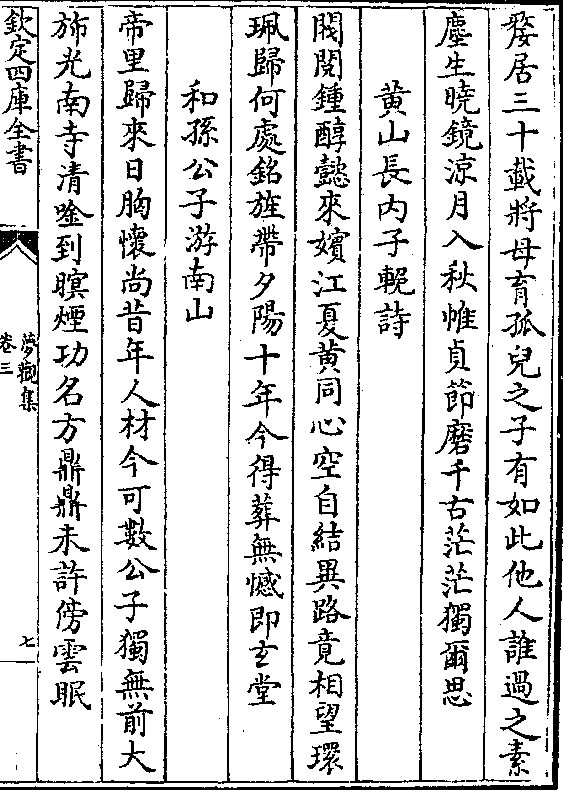 嫠居三十載將母育孤兒之子有如此他人誰過之素
塵生曉鏡涼月入秋帷貞節磨千古茫茫獨爾思
黄山長内子輓詩
閥閱鍾醇懿來嬪江夏黄同心空自結異路竟相望環
珮歸何處銘旌帶夕陽十年今得葬無憾即玄堂
和孫公子游南山
帝里歸來日胸懷尚昔年人材今可數公子獨無前大
斾光南寺清唫到暝煙功名方鼎鼎未許傍雲眠
欽定四庫全書
夢觀集
卷三
七